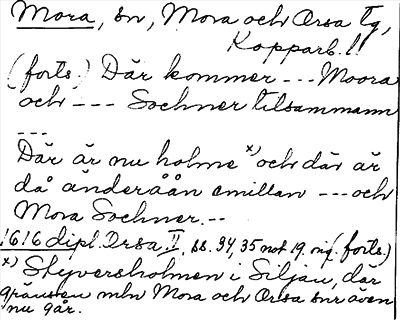 Mora, sn, Mora och Orsa tg,
Kopparb. l.
(forts.) Där kommer --- Moora
och --- Sochner tilsammann
---
Där är nu holme x) och där är
då änderåån emillan --- och
Mora Sochner.--
1616 dipl. Drsa II, ss. 34, 35 not 19. orig (forts.)
x) Styversholmen i Siljan, där
gränsen mln Mora och Orsa snr även
nu går.